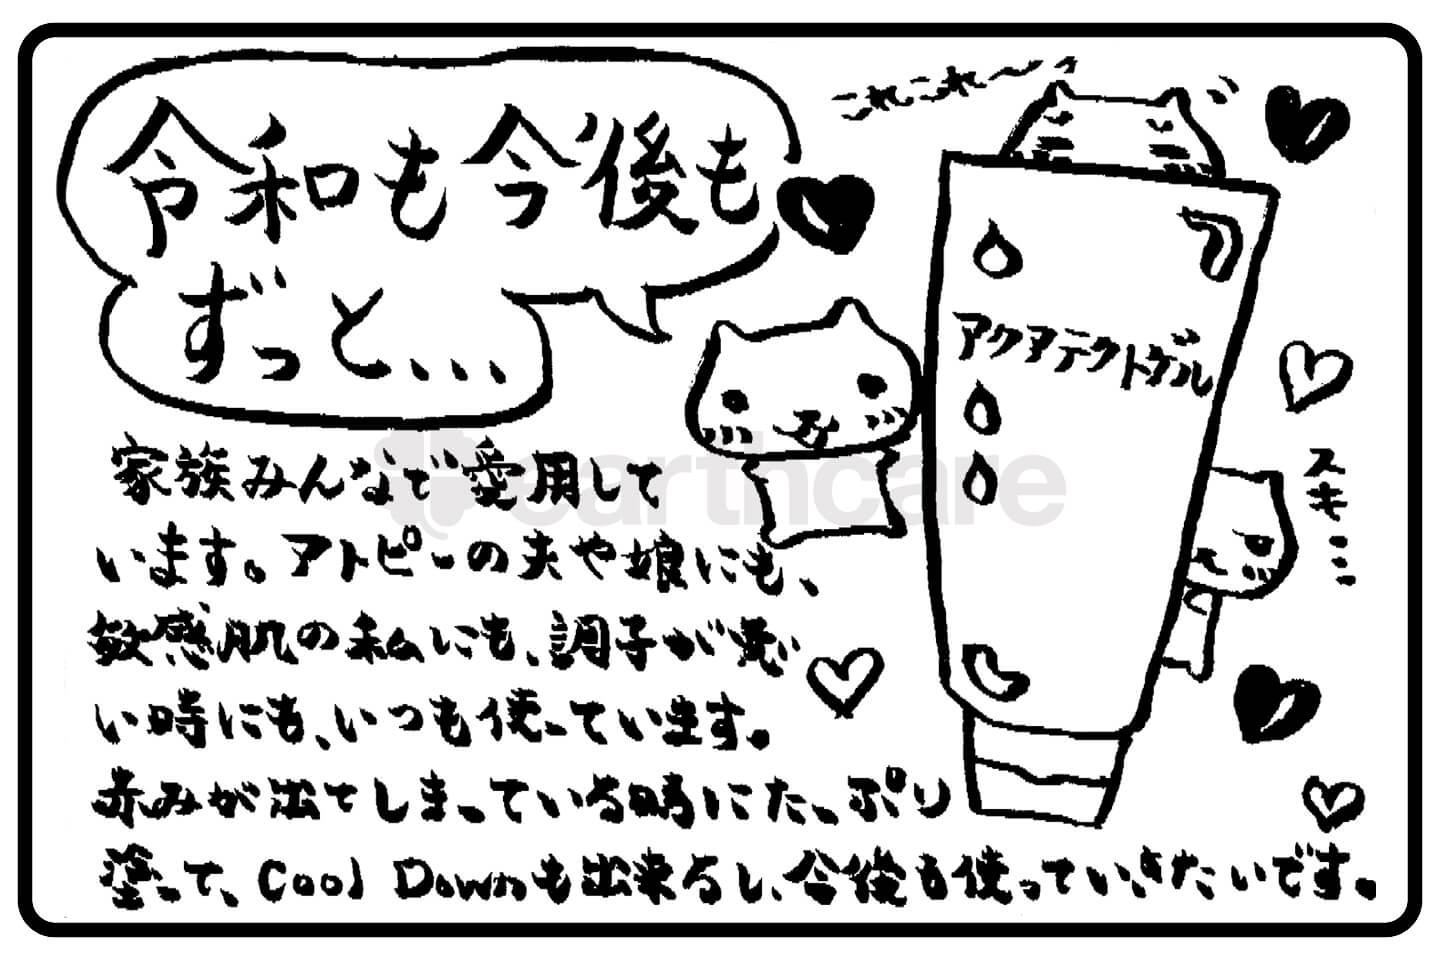 令和も今後も
ずっと...
これこれ〜っ
アクアテクトゲル
スキ…ミ
家族みんなで愛用して
います。アトピーの夫や娘にも、
敏感肌の私にも、調子が悪
い時にも、いつも使っています。
赤みが出てしまっている時にたっぷり
塗って、Cool Downも出来るし、今後も使っていきたいです。
earthcare